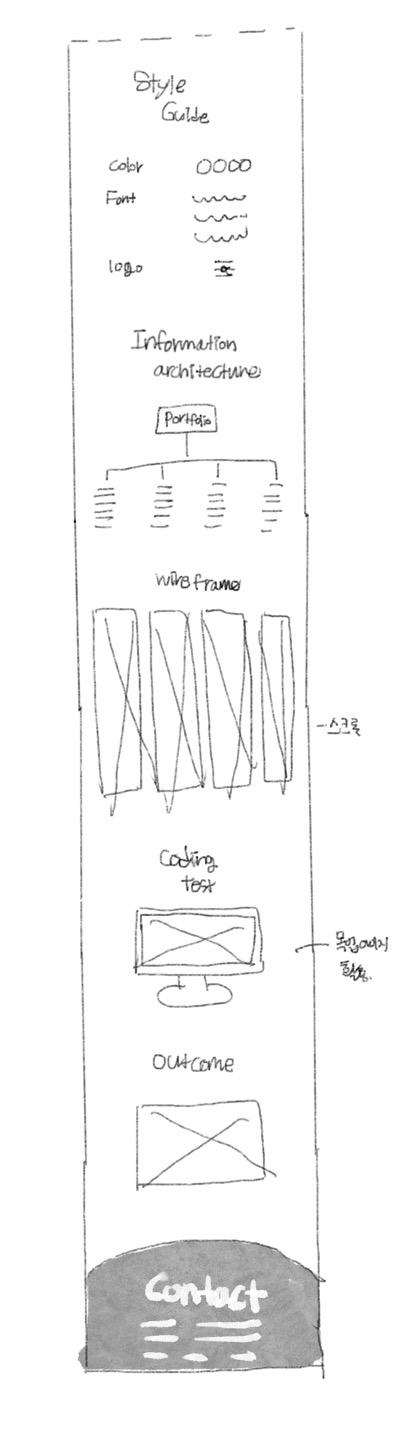 Style
Guide
Color
Font
logo
Information
architecture
Portfolio
wireframe
스크롤
Coding
test
목업이미지
활용.
Outcome
Contact